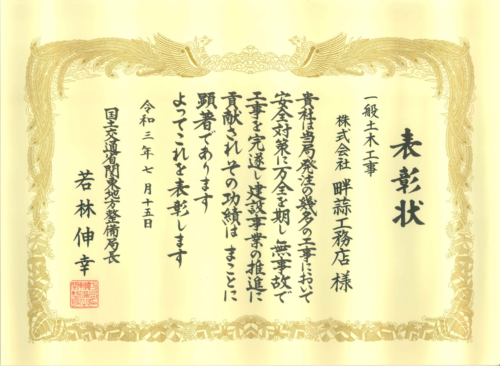 表彰状
一般土木工事
株式会社 畔蒜工務店 様
貴社は当局発注の幾多の工事において
安全対策に万全を期し無事故で
工事を完遂し建設事業の推進に
貢献されその功績はまことに
顕著であります
よってこれを表彰します
令和三年七月十五日
国土交通省関東地方整備局長
若林伸幸